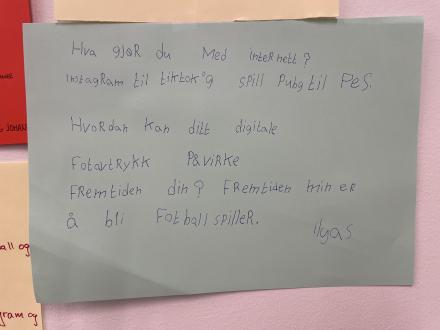 Hva gjør du Med internett?
instagram til tiktok og spill Pubg til Pes.
Hvordan kan ditt digitale
Fotavtrykk Påvirke
Fremtiden din? Fremtiden min er
å bli Fotballspiller.
ilyas
G JOHAN
all og
gram og